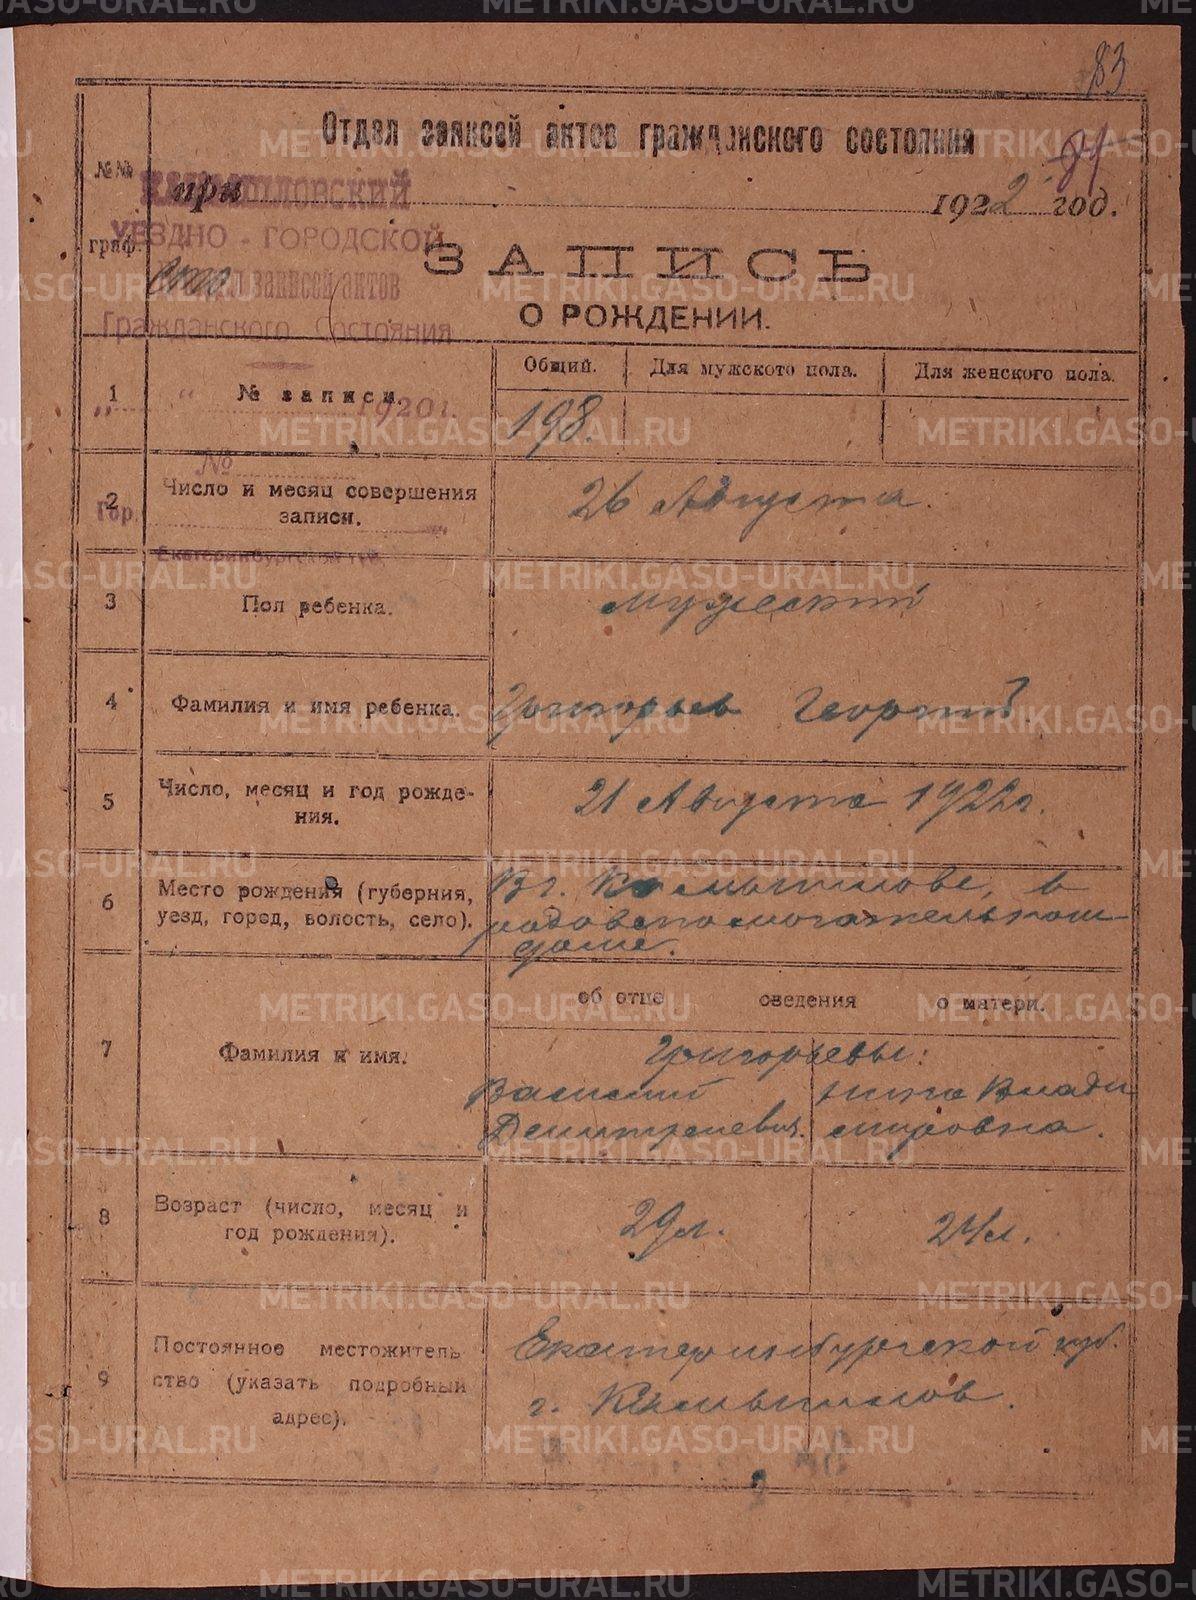 83
Отдел записей актов гражданского состояния
№№
граф.
при 1922 год.
84
КАМЫШЛОВСКИЙ
УЕЗДНО - ГОРОДСКОЙ
Отдел записей актов
Гражданского Состояния
" " 1920 г.
№
Гор.
Екатеринбургской губ.
ЗАПИСЬ
О РОЖДЕНИИ.
1 № записи. Общий. Для мужского пола. Для женского пола.
198.
2 Число и месяц совершения
записи.
26 Августа.
3 Пол ребенка. Мужеский
4 Фамилия и имя ребенка. Григорьев Георгий.
5 Число, месяц и год рожде-
ния.
21 Августа 1922 г.
6 Место рождения (губерния,
уезд, город, волость, село).
В г. Камышлове, в
родовспомогательном
доме.
об отце сведения о матери.
7 Фамилия и имя. Григорьевы:
Василий Нина Влади
Дмитриевич. мировна.
8 Возраст (число, месяц и
год рождения).
29 л. 24 л.
9 Постоянное местожитель
ство (указать подробный
адрес).
Екатеринбургской губ.
г. Камышлов.
METRIKI.GASO-URAL.RU